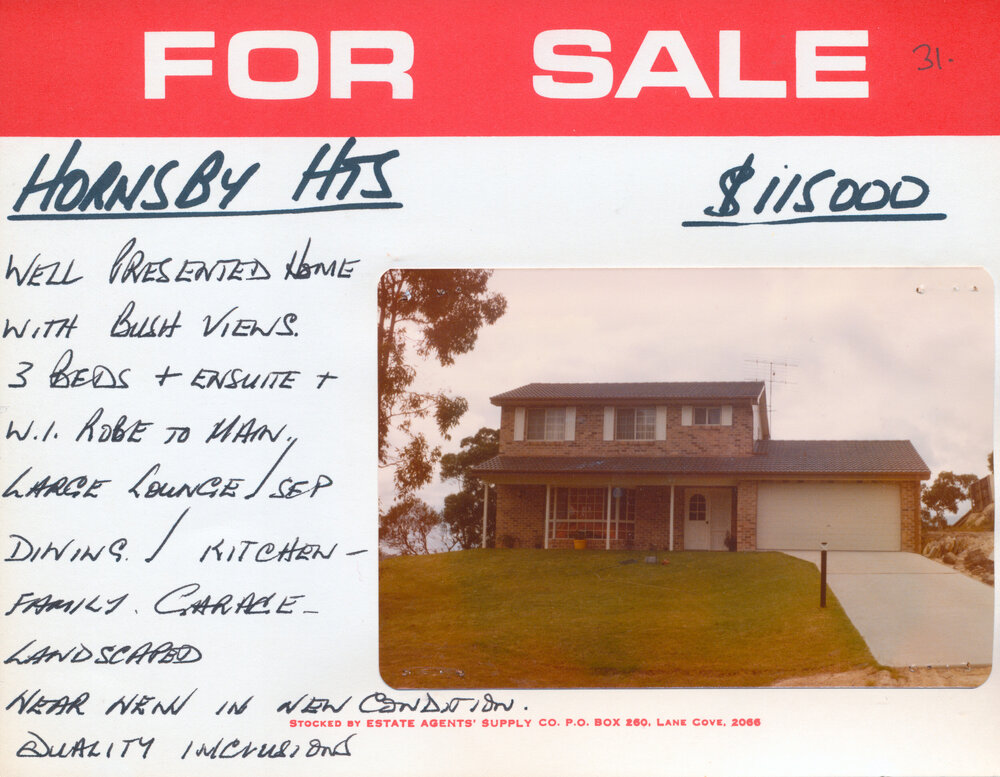 FOR SALE
31.
HORNSBY HTS
$115000
WELL PRESENTED HOME
WITH BUSH VIEWS.
3 BEDS + ENSUITE +
W.I. ROBE TO MAIN,
LARGE LOUNGE / SEP
DINING. / KITCHEN -
FAMILY. GARAGE -
LANDSCAPED
NEAR NEW IN NEW CONDITION.
STOCKED BY ESTATE AGENTS' SUPPLY CO. P.O. BOX 260, LANE COVE, 2066
QUALITY INCLUSIONS